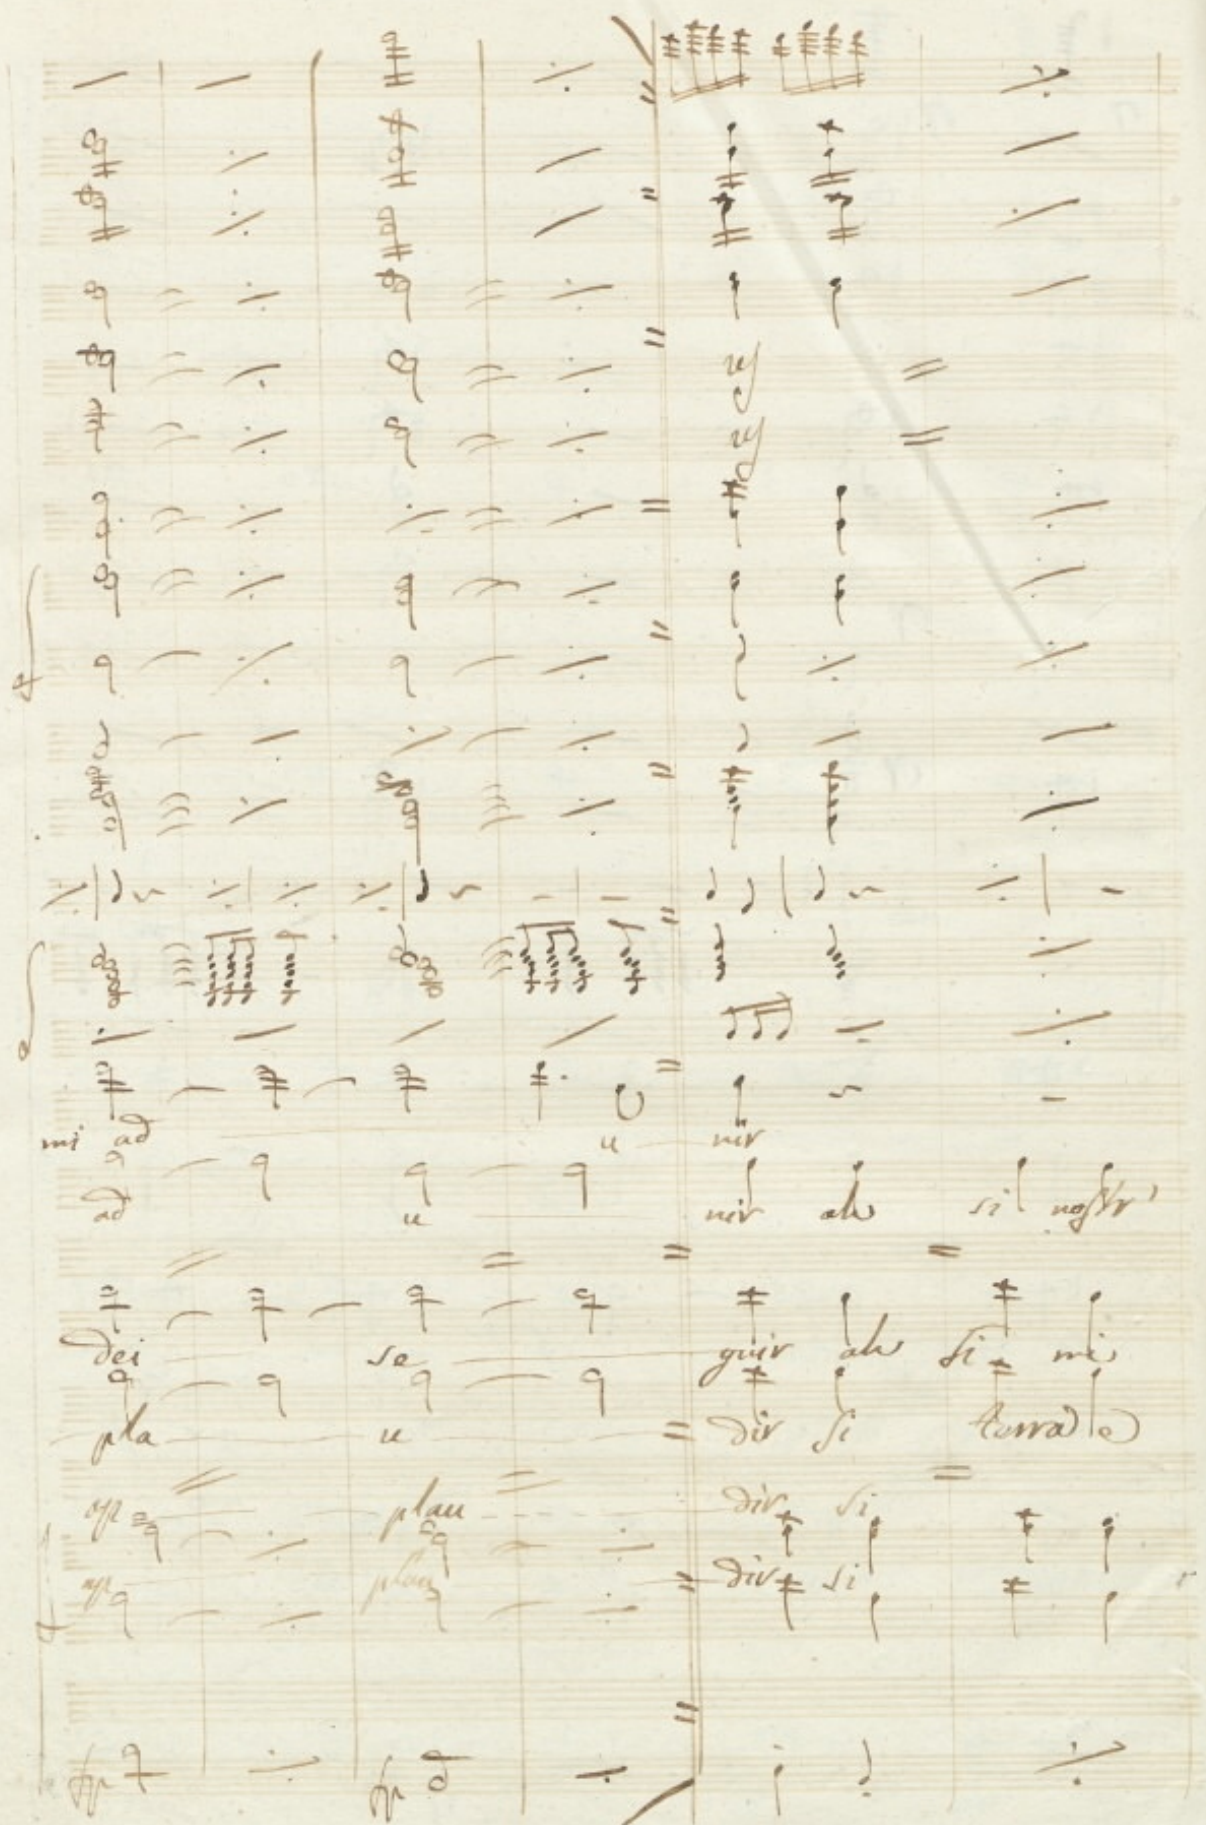 mi ad u nir
ad u nir ah si nostr'
dei se guir ah si mi
pla u dir si
ap plau dir si
ap plau dir si